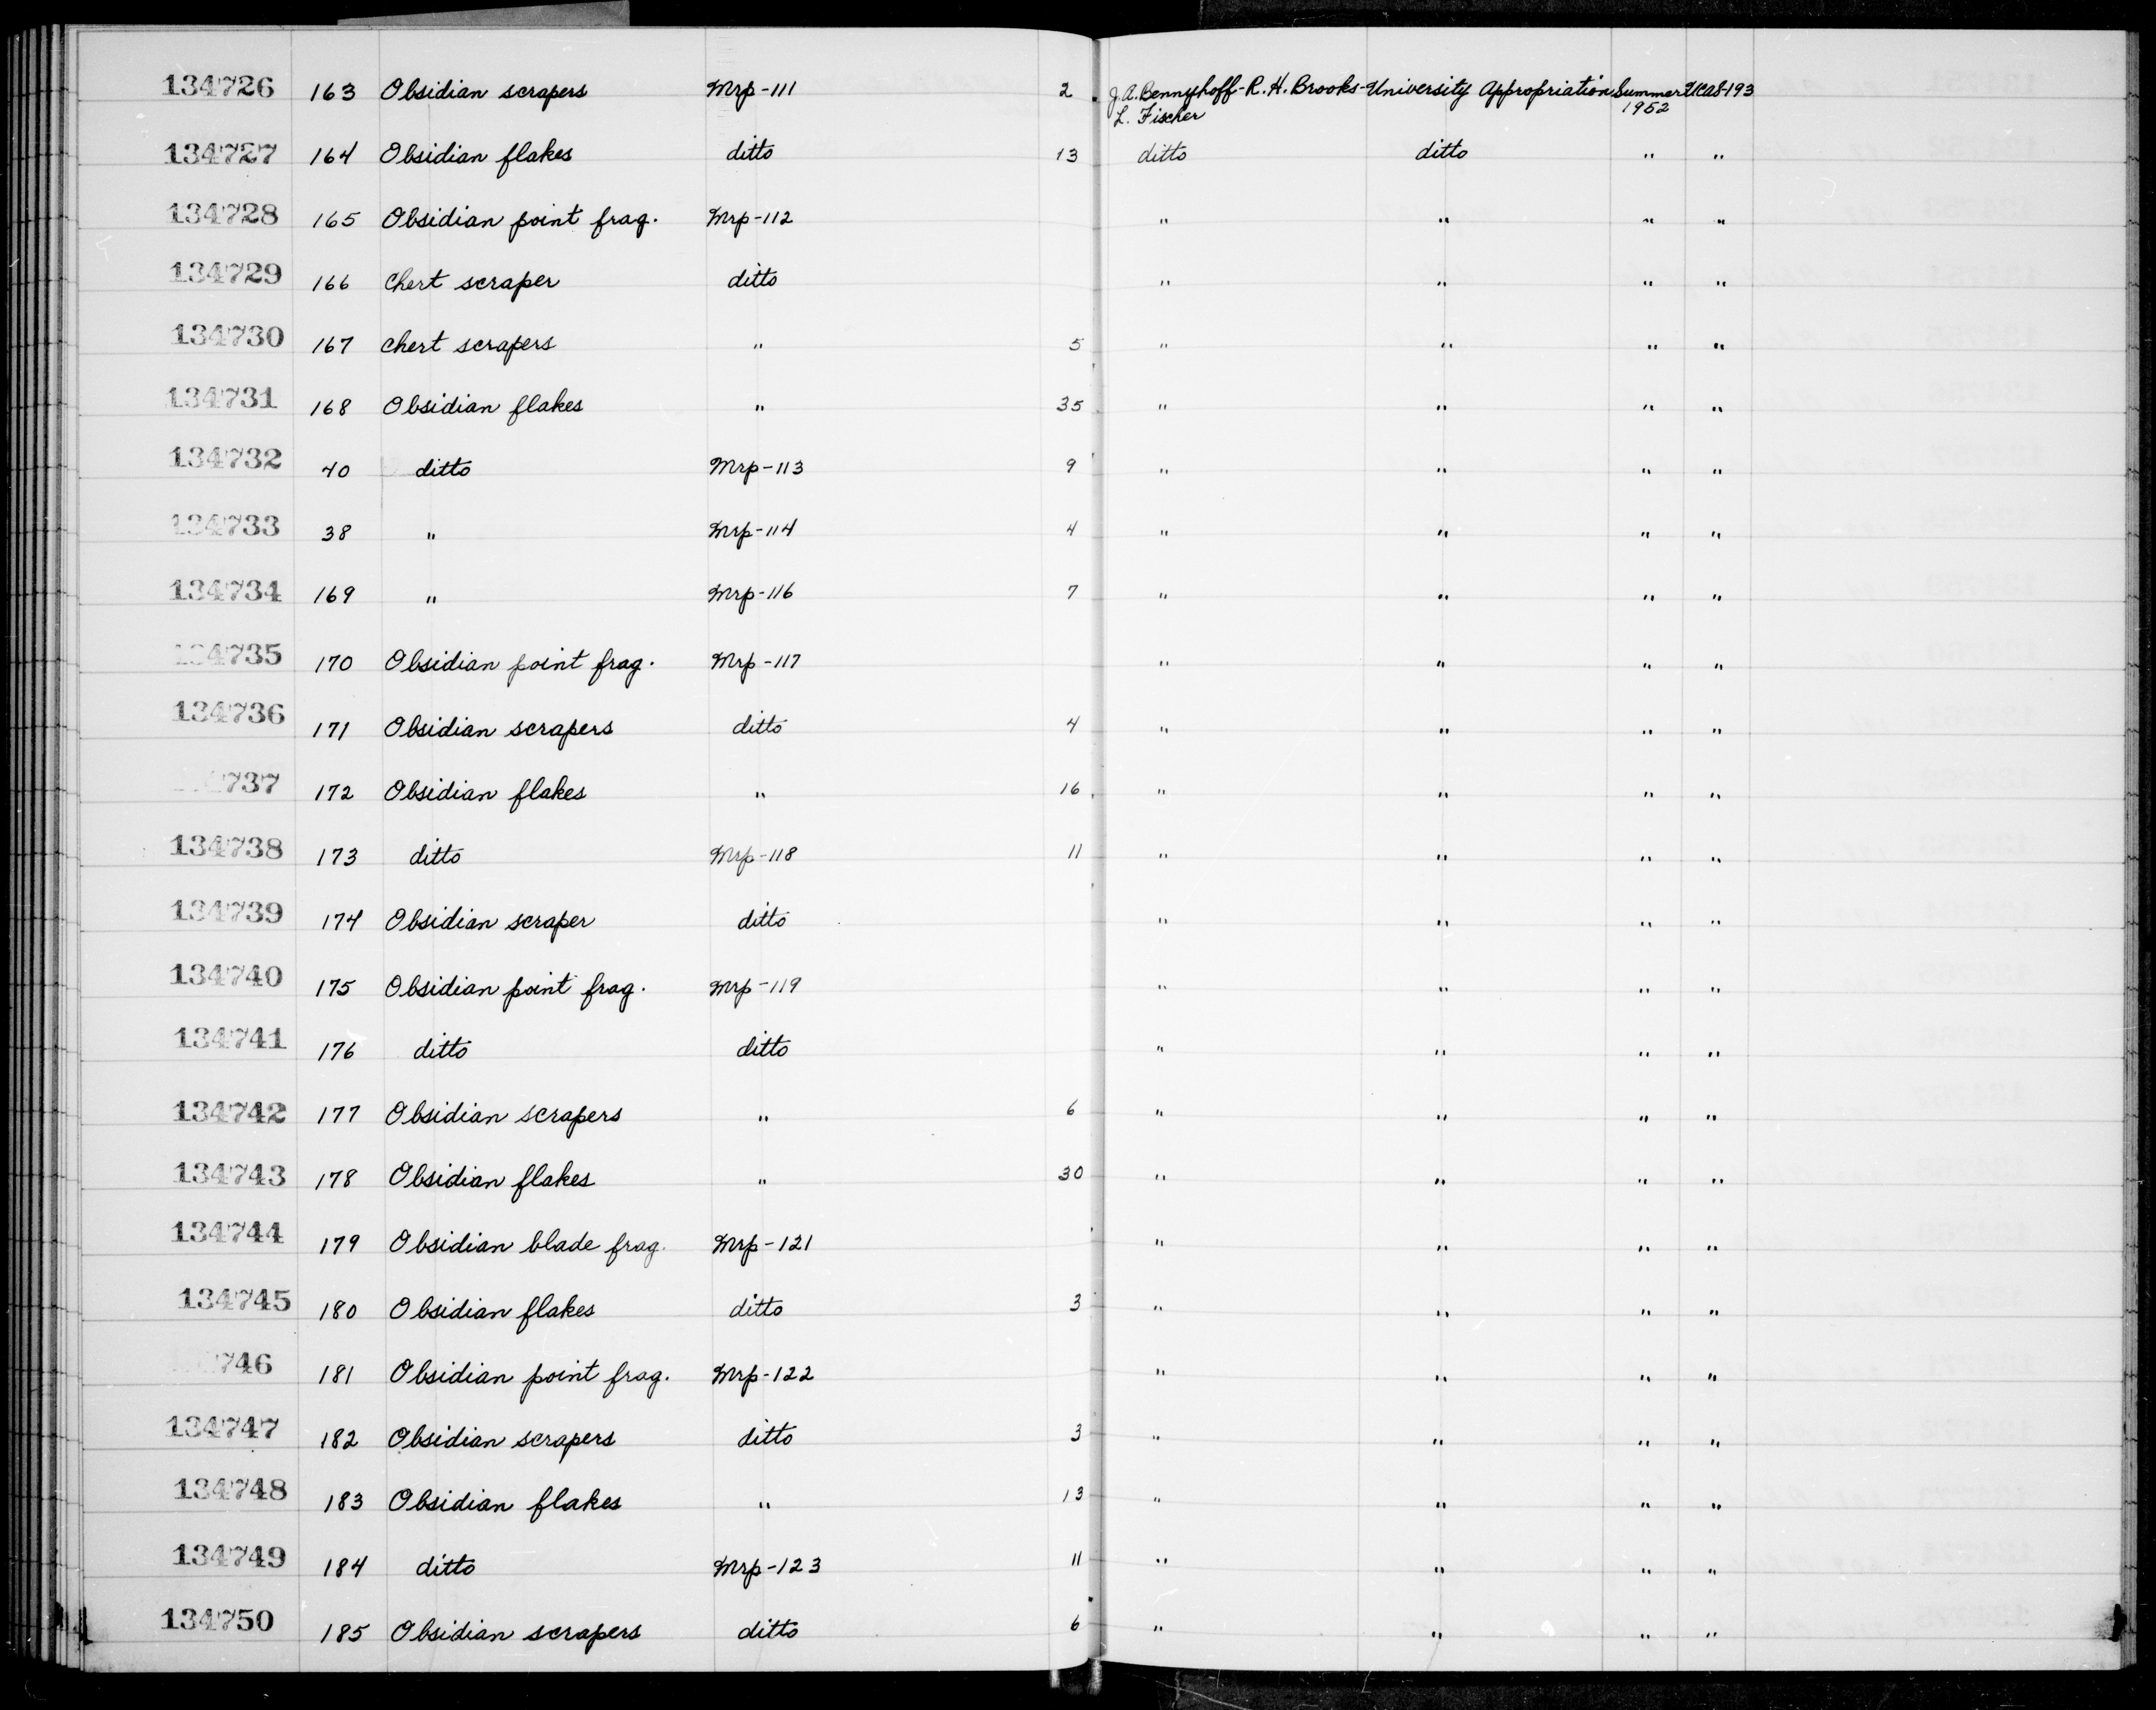 134726 163 Obsidian scrapers Mrp-111 2 J.A. Bennyhoff-R.H. Brooks- University Appropriation Summer UCAS-193
L. Fischer 1952
134727 164 Obsidian flakes ditto 13 ditto ditto " "
134728 165 Obsidian point frag. Mrp-112 " " " "
134729 166 Chert scraper ditto " " " "
134730 167 Chert scrapers " 5 " " " "
134731 168 Obsidian flakes " 35 " " " "
134732 40 ditto Mrp-113 9 " " " "
134733 38 " Mrp-114 4 " " " "
134734 169 " Mrp-116 7 " " " "
134735 170 Obsidian point frag. Mrp-117 " " " "
134736 171 Obsidian scrapers ditto 4 " " " "
737 172 Obsidian flakes " 16 " " " "
134738 173 ditto Mrp-118 11 " " " "
134739 174 Obsidian scraper ditto " " " "
134740 175 Obsidian point frag. Mrp-119 " " " "
134741 176 ditto ditto " " " "
134742 177 Obsidian scrapers " 6 " " " "
134743 178 Obsidian flakes " 30 " " " "
134744 179 Obsidian blade frag. Mrp-121 " " " "
134745 180 Obsidian flakes ditto 3 " " " "
746 181 Obsidian point frag. Mrp-122 " " " "
134747 182 Obsidian scrapers ditto 3 " " " "
134748 183 Obsidian flakes " 13 " " " "
134749 184 ditto Mrp-123 11 " " " "
134750 185 Obsidian scrapers ditto 6 " " " "